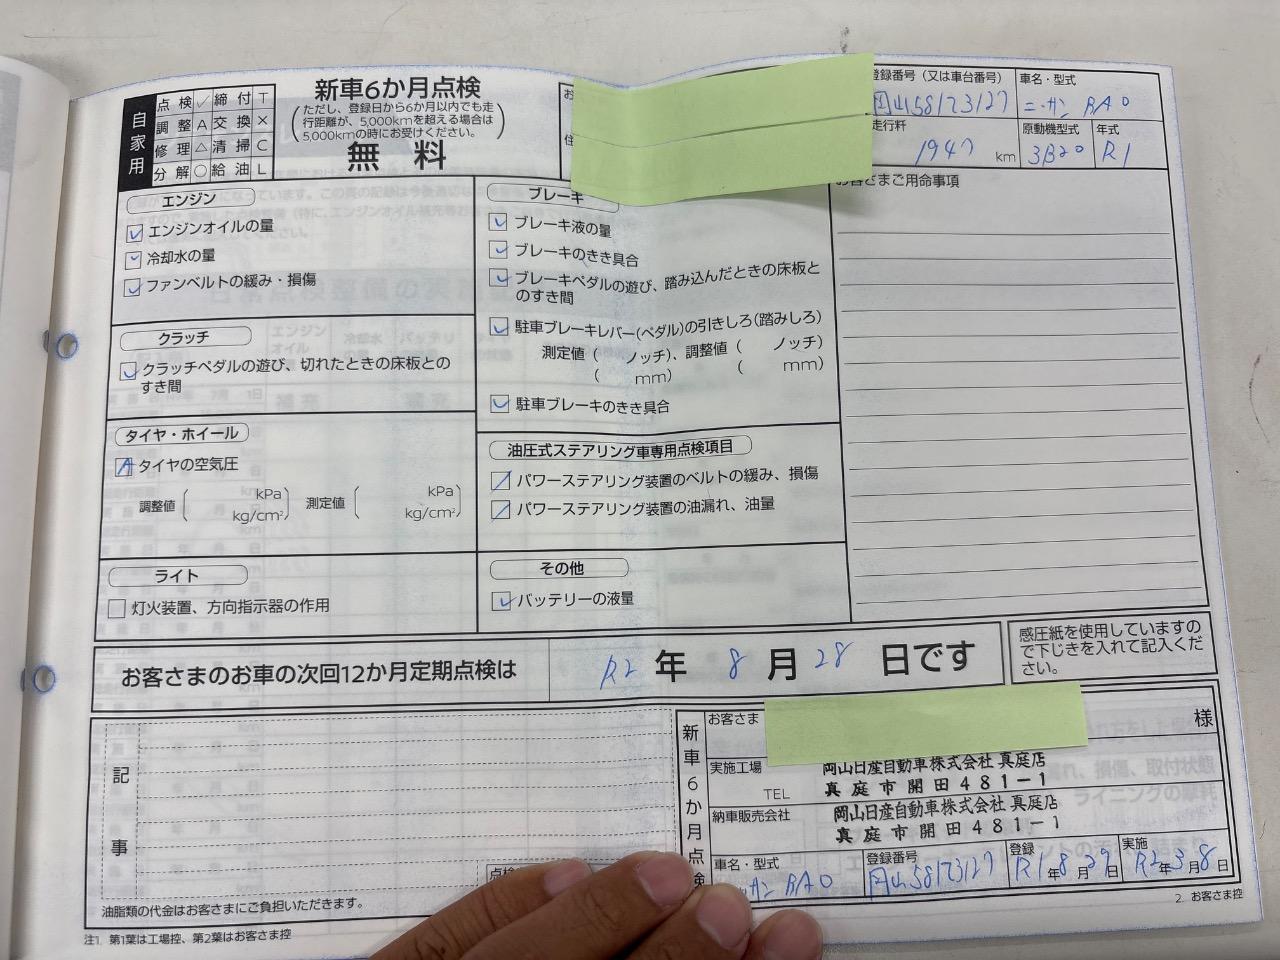 自家用
点検 ✓ 締付 T
調整 A 交換 ×
修理 △ 清掃 C
分解 ○ 給油 L
新車6か月点検
(ただし、登録日から6か月以内でも走
行距離が、5,000kmを超える場合は
5,000kmの時にお受けください。)
無料
お
住
登録番号(又は車台番号)
車名・型式
ニッサン BA0
走行料
1947 km
原動機型式
3B20
年式
R1
お客さまご用命事項
エンジン
エンジンオイルの量
冷却水の量
ファンベルトの緩み・損傷
クラッチ
クラッチペダルの遊び、切れたときの床板との
すき間
タイヤ・ホイール
A タイヤの空気圧
調整値 ( kPa kg/cm²) 測定値 ( kPa kg/cm²)
ライト
灯火装置、方向指示器の作用
ブレーキ
ブレーキ液の量
ブレーキのきき具合
ブレーキペダルの遊び、踏み込んだときの床板と
のすき間
駐車ブレーキレバー(ペダル)の引きしろ(踏みしろ)
測定値 ( ノッチ)、調整値 ( ノッチ)
( mm) ( mm)
駐車ブレーキのきき具合
油圧式ステアリング車専用点検項目
パワーステアリング装置のベルトの緩み、損傷
パワーステアリング装置の油漏れ、油量
その他
バッテリーの液量
お客さまのお車の次回12か月定期点検は R2 年 8 月 28 日です
感圧紙を使用していますの
で下じきを入れて記入くだ
さい。
記事
点検
油脂類の代金はお客さまにご負担いただきます。
注1. 第1葉は工場控、第2葉はお客さま控
新車6か月点検
お客さま 様
実施工場
TEL
岡山日産自動車株式会社 真庭店
真庭市開田481-1
納車販売会社
岡山日産自動車株式会社 真庭店
真庭市開田481-1
車名・型式
BA0
登録番号
登録
R1年8月29日
実施
R2年3月8日
2. お客さま控